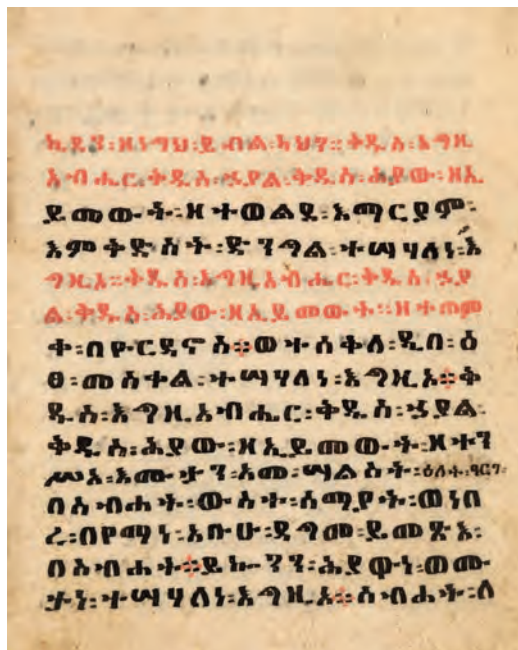 ኪዳን፡ዘነግህ፡ይብል፡ካህን፡፡ቅዱስ፡እግዚ
አብሔር፡ቅዱስ፡ኃያል፡ቅዱስ፡ሕያው፡ዘኢ
ይመውት፡ዘተወልደ፡እማርያም፡
እምቅድስት፡ድንግል፡ተሣሃለነ፡እ
ግዚኦ፡፡ቅዱስ፡እግዚአብሔር፡ቅዱስ፡ኃያ
ል፡ቅዱስ፡ሕያው፡ዘኢይመውት፡፡ዘተጠም
ቀ፡በዮርዳኖስ፡፡ወተሰቅለ፡ዲበ፡ዕ
ፀ፡መስቀል፡ተሣሃለነ፡እግዚኦ፡፡ቅ
ዱስ፡እግዚአብሔር፡ቅዱስ፡ኃያል፡
ቅዱስ፡ሕያው፡ዘኢይመውት፡ዘተን
ሥአ፡እሙታን፡አመ፡ሣልስት፡ዕለት፡ዓርገ፡
በስብሐት፡ውስተ፡ሰማያት፡ወነበ
ረ፡በየማነ፡አቡሁ፡ዳግመ፡ይመጽእ፡
በስብሐት፡፡ይኰንን፡ሕያዋነ፡ወሙ
ታነ፡ተሣሃለነ፡እግዚኦ፡፡ስብሐት፡ለ